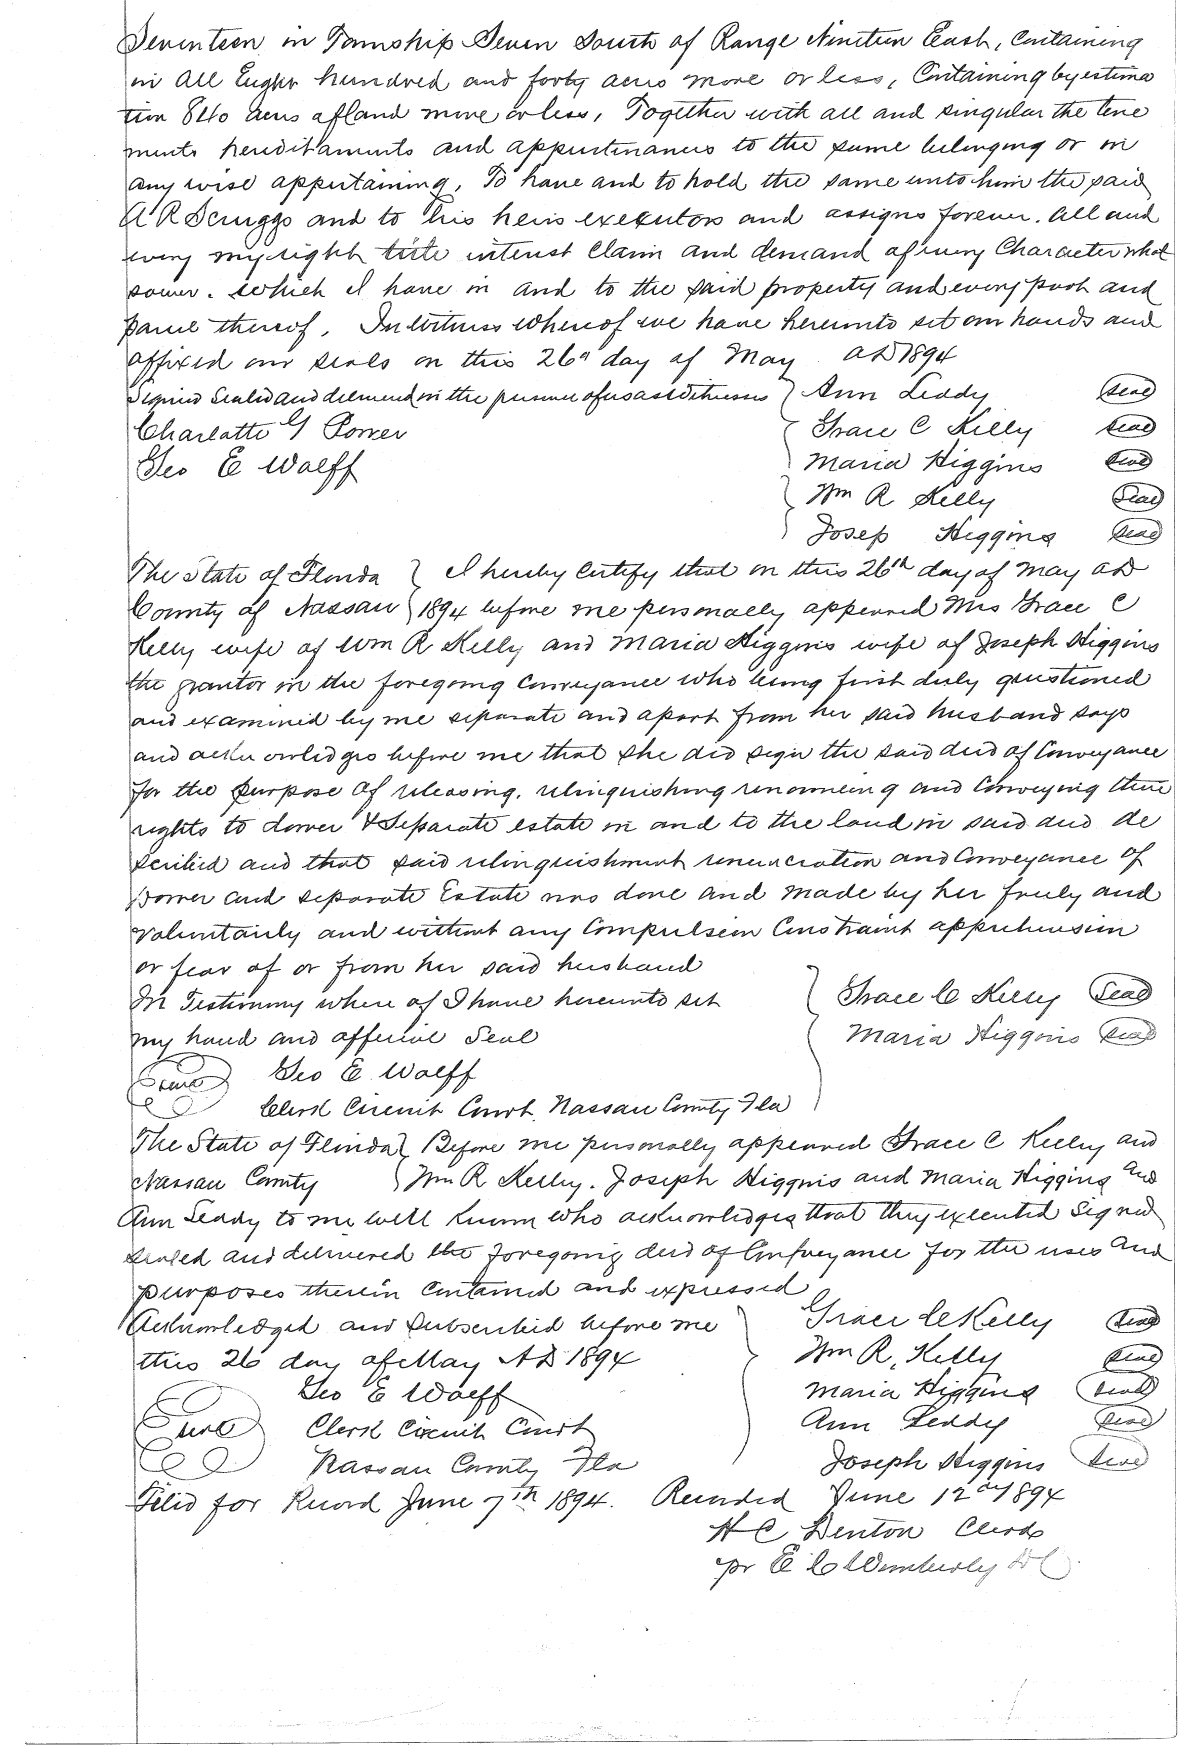 Seventeen in Township Seven South of Range Nineteen East, Containing
in all Eight hundred and forty acres more or less, Containing by estima
tion 840 acres of land more or less, Together with all and singular the tene
ments hereditaments and appurtenances to the same belonging or in
any wise appertaining, To have and to hold the same unto him the said
A R Scruggs and to his heirs executors and assigns forever. all and
every my right title interest Claim and demand of every Character what
soever. which I have in and to the said property and every part and
parcel thereof, In witness whereof we have hereunto set our hands and
affixed our seals on this 26th day of May AD 1894
Signed Sealed and delivered in the presence of us as witnesses } Ann Leddy Seal
Charlotte G Power Grace C Kelly Seal
Geo E Wolff Maria Higgins Seal
Wm R Kelly Seal
Josep Higgins Seal
The State of Florida } I hereby certify that on this 26th day of May AD
County of Nassau } 1894 before me personally appeared Mrs Grace C
Kelly wife of Wm R Kelly and Maria Higgins wife of Joseph Higgins
the grantor in the foregoing Conveyance who being first duly questioned
and examined by me separate and apart from her said husband says
and acknowledges before me that she did sign the said deed of Conveyance
for the purpose of releasing, relinquishing renouncing and Conveying there
rights to dower & Separate estate in and to the land in said deed de
scribed and that said relinquishment renunciation and Conveyance of
Dower and separate Estate was done and made by her freely and
voluntarily and without any Compulsion Constraint apprehension
or fear of or from her said husband
In Testimony where of I have hereunto set } Grace C Kelly Seal
my hand and official Seal Maria Higgins Seal
Seal Geo E Wolff
Clerk Circuit Court Nassau County Fla
The State of Florida } Before me personally appeared Grace C Kelly and
Nassau County } Wm R Kelly. Joseph Higgins and Maria Higgins and
Ann Leddy to me well known who acknowledges that they executed Signed
sealed and delivered the foregoing deed of Conveyance for the uses and
purposes therein contained and expressed
Acknowledged and Subscribed before me Grace C Kelly Seal
this 26 day of May AD 1894 Wm R. Kelly Seal
Geo E Wolff Maria Higgins Seal
Seal Clerk Circuit Court Ann Leddy Seal
Nassau County Fla Joseph Higgins Seal
Filed for Record June 7th 1894. Recorded June 12th 1894
H C Denton Clerk
pr E C Wimberly D C